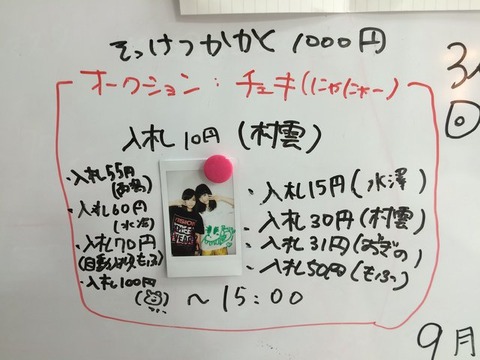 そっけつかかと 1000円
オークション：チェキ(にゃにゃー)
入札10円(村雲)
・入札15円(水澤)
・入札30円(村雲)
・入札31円(おぎの)
・入札50円(もふっ)
・入札55円
・入札60円
・入札70円
・入札100円
〜15:00
9月